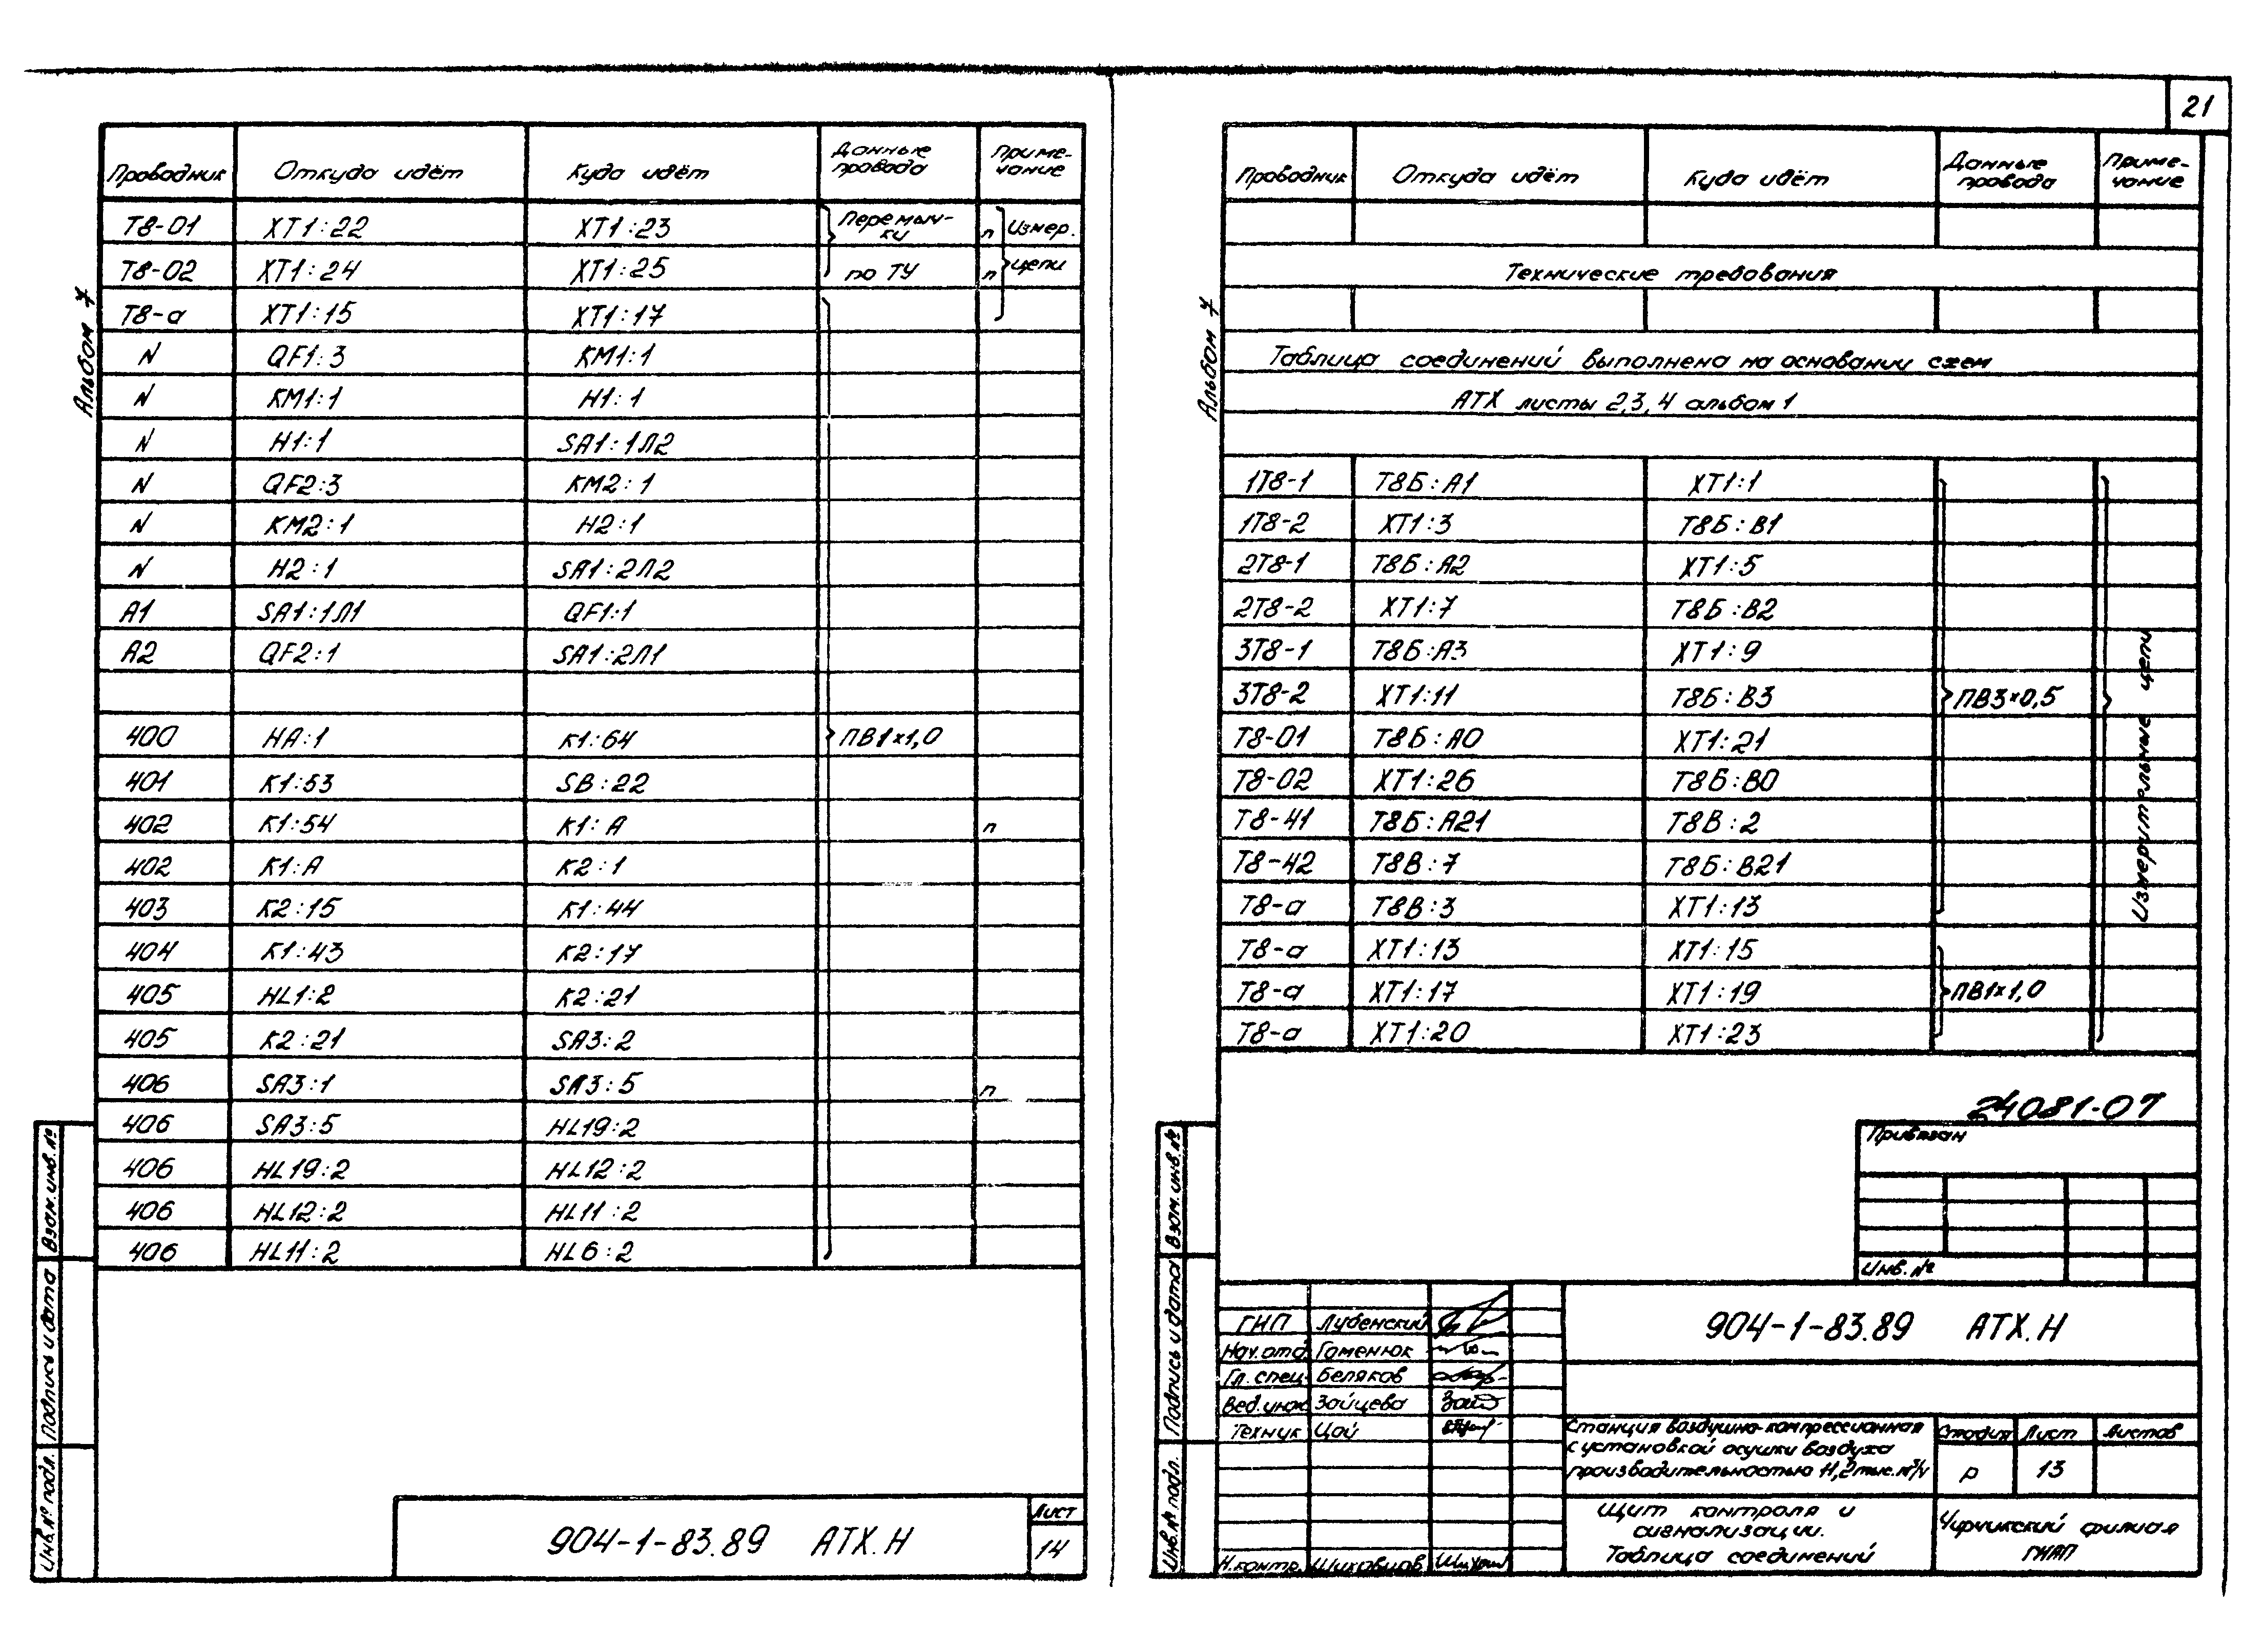 21
Альбом 7
Проводник Откуда идёт Куда идёт Данные провода Приме-чание
Т8-01 ХТ1:22 ХТ1:23 Перемыч-ки п Измер.
Т8-02 ХТ1:24 ХТ1:25 по ТУ п цепи
Т8-а ХТ1:15 ХТ1:17
N QF1:3 КМ1:1
N КМ1:1 Н1:1
N Н1:1 SA1:1Л2
N QF2:3 КМ2:1
N КМ2:1 Н2:1
N Н2:1 SA1:2Л2
А1 SA1:1Л1 QF1:1
А2 QF2:1 SA1:2Л1
400 НА:1 К1:64 ПВ1×1,0
401 К1:53 SB:22
402 К1:54 К1:А п
402 К1:А К2:1
403 К2:15 К1:44
404 К1:43 К2:17
405 HL1:2 К2:21
405 К2:21 SA3:2
406 SA3:1 SA3:5 п
406 SA3:5 HL19:2
406 HL19:2 HL12:2
406 HL12:2 HL11:2
406 HL11:2 HL6:2
Взам. инв. №
Подпись и дата
Инв. № подл.
904-1-83.89 АТХ.Н
Лист
14
Альбом 7
Проводник Откуда идёт Куда идёт Данные провода Приме-чание
Технические требования
Таблица соединений выполнена на основании схем
АТХ листы 2,3,4 альбом 1
1Т8-1 Т8Б:А1 ХТ1:1
1Т8-2 ХТ1:3 Т8Б:В1
2Т8-1 Т8Б:А2 ХТ1:5
2Т8-2 ХТ1:7 Т8Б:В2
3Т8-1 Т8Б:А3 ХТ1:9
3Т8-2 ХТ1:11 Т8Б:В3 ПВ3×0,5
Т8-01 Т8Б:А0 ХТ1:21
Т8-02 ХТ1:26 Т8Б:В0
Т8-41 Т8Б:А21 Т8В:2
Т8-42 Т8В:7 Т8Б:В21
Т8-а Т8В:3 ХТ1:13
Т8-а ХТ1:13 ХТ1:15
Т8-а ХТ1:17 ХТ1:19 ПВ1×1,0
Т8-а ХТ1:20 ХТ1:23
Измерительные цепи
24081-07
Привязан
Инв. №
Взам. инв. №
Подпись и дата
Инв. № подл.
ГИП Лубенский
Нач. отд. Гаменюк
Гл. спец. Беляков
Вед. инж. Зайцева
Техник Цой
Н. контр.
904-1-83.89 АТХ.Н
Станция воздушно-компрессионная
с установкой осушки воздуха
производительностью 11,2 тыс. м³/ч
Стадия Лист Листов
Р 13
Щит контроля и
сигнализации.
Таблица соединений
Чирчикский филиал
ГИАП